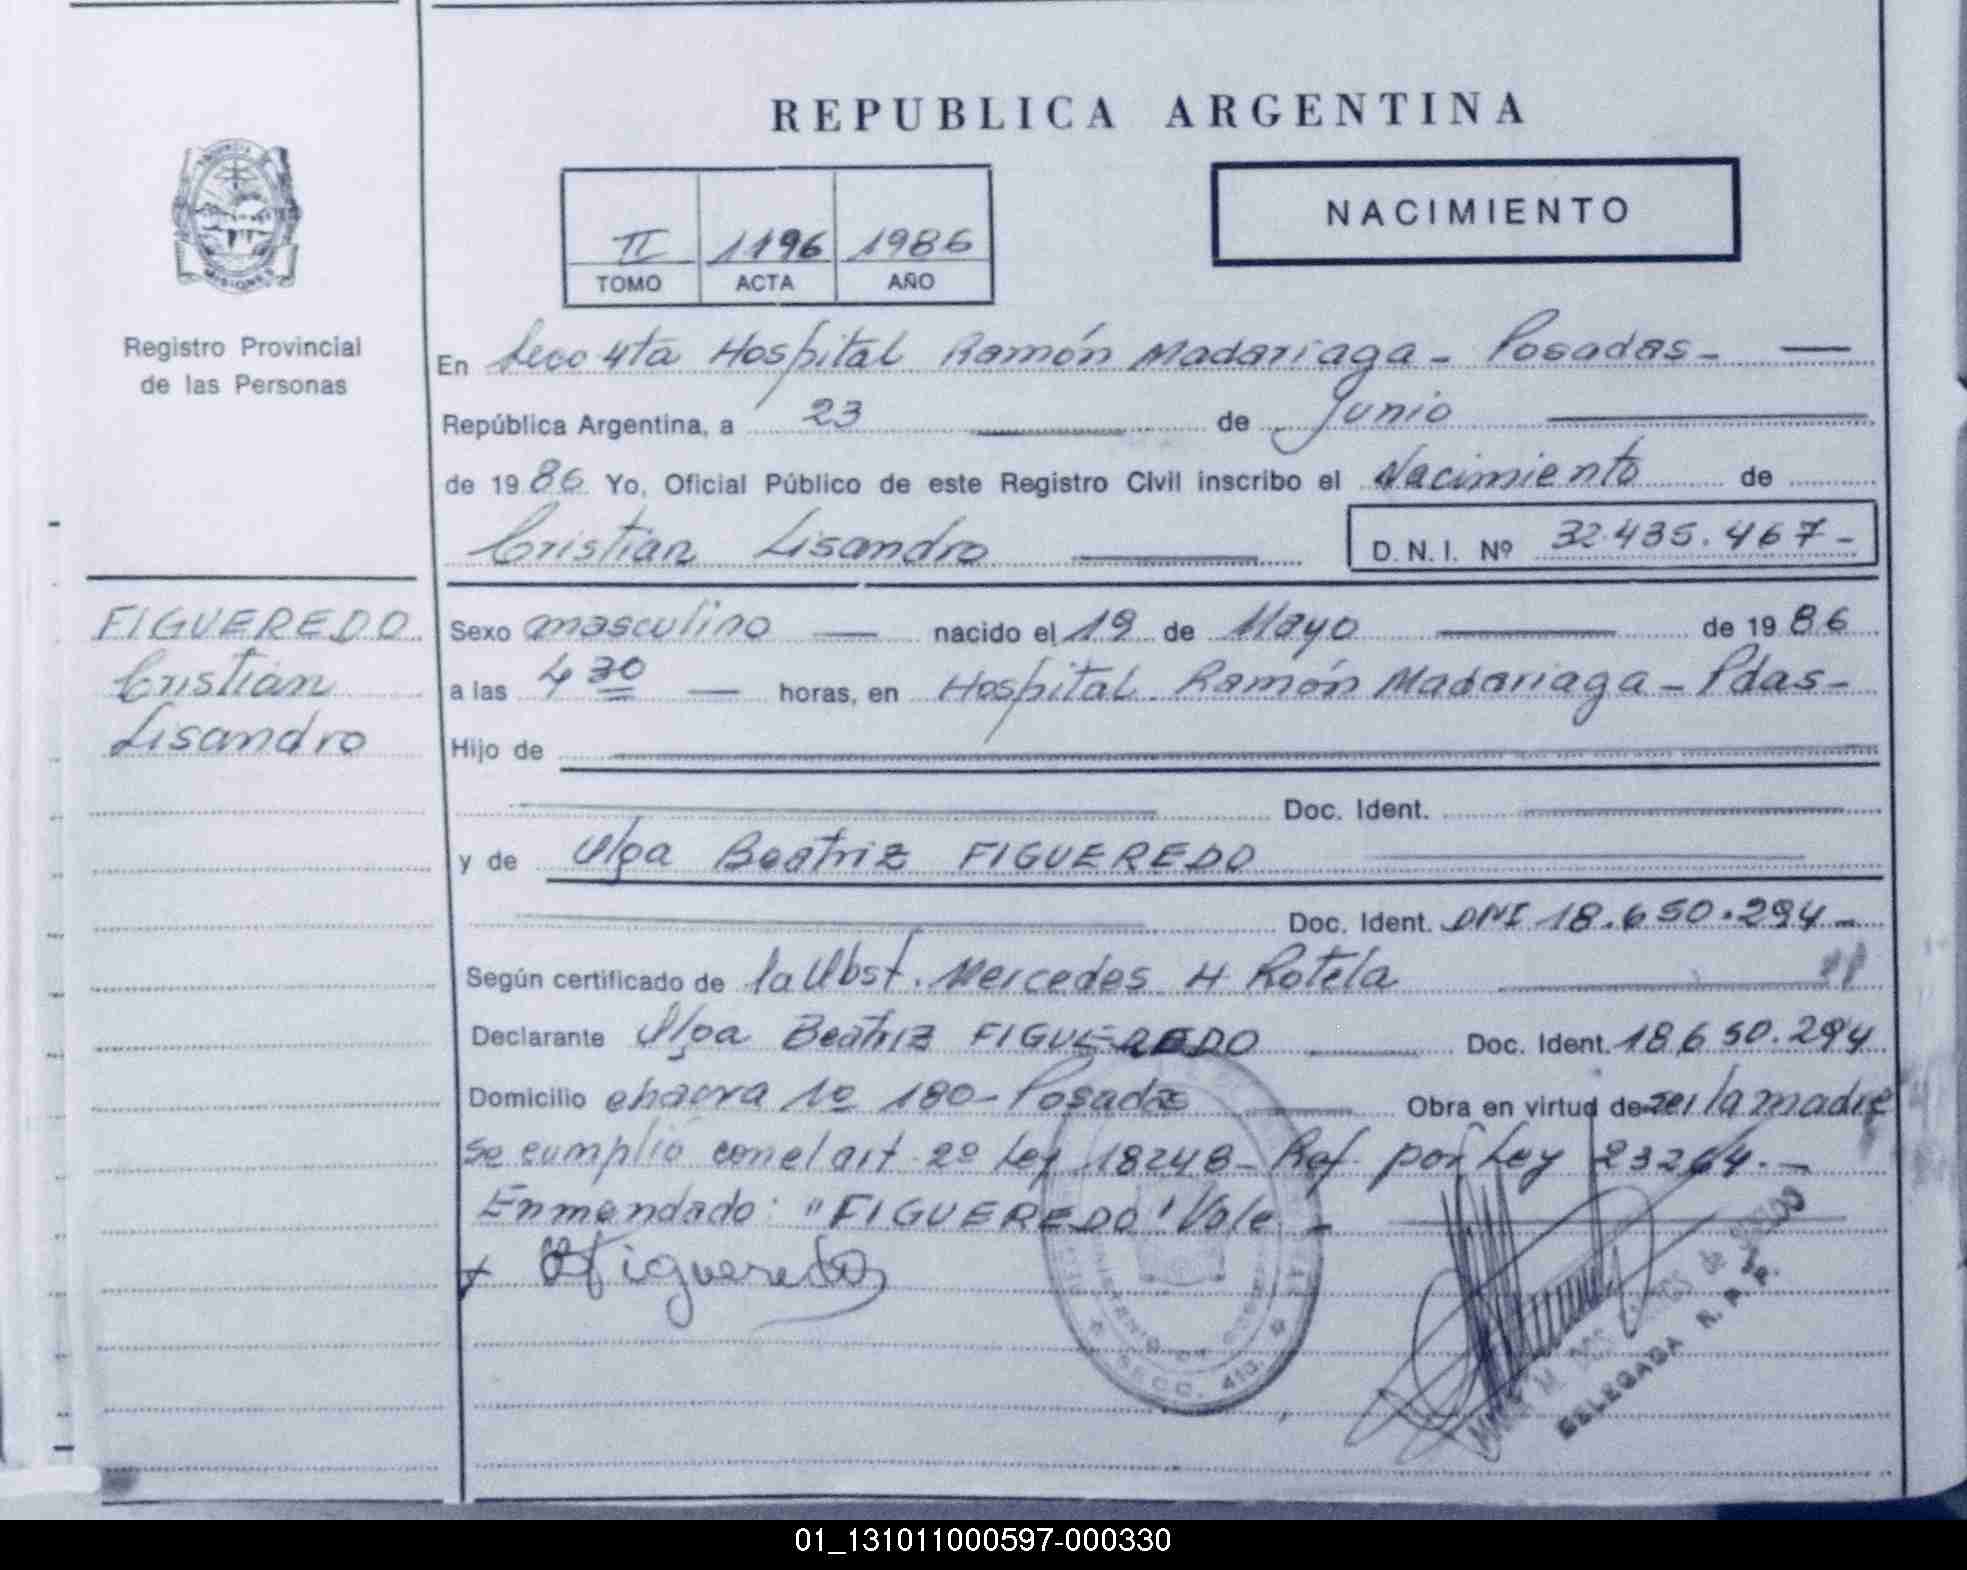 REPUBLICA ARGENTINA
NACIMIENTO
II 1196 1986
TOMO ACTA AÑO
PROVINCIA DE
MISIONES
Registro Provincial
de las Personas
En Secc 4ta Hospital Ramón Madariaga - Posadas -
República Argentina, a 23 de Junio
de 1986 Yo, Oficial Público de este Registro Civil inscribo el Nacimiento de
Cristian Lisandro D.N.I. Nº 32.435.467-
FIGUEREDO
Cristian
Lisandro
Sexo masculino nacido el 19 de Mayo de 1986
a las 4 30 horas, en Hospital Ramón Madariaga - Pdas -
Hijo de
Doc. Ident.
y de Olga Beatriz FIGUEREDO
Doc. Ident. DNI 18.650.294-
Según certificado de la Obst. Mercedes H Rotela
Declarante Olga Beatriz FIGUEREDO Doc. Ident. 18.650.294
Domicilio chacra 1º 180- Posadas Obra en virtud de ser la madre
Se cumplió con el art 2º Ley 18248- Ref. por Ley 23264.-
Enmendado: "FIGUEREDO" Vale -
x Figueredo
MINISTERIO DE
SECC. 4ta.
DELEGADA R. P. P.
01_131011000597-000330